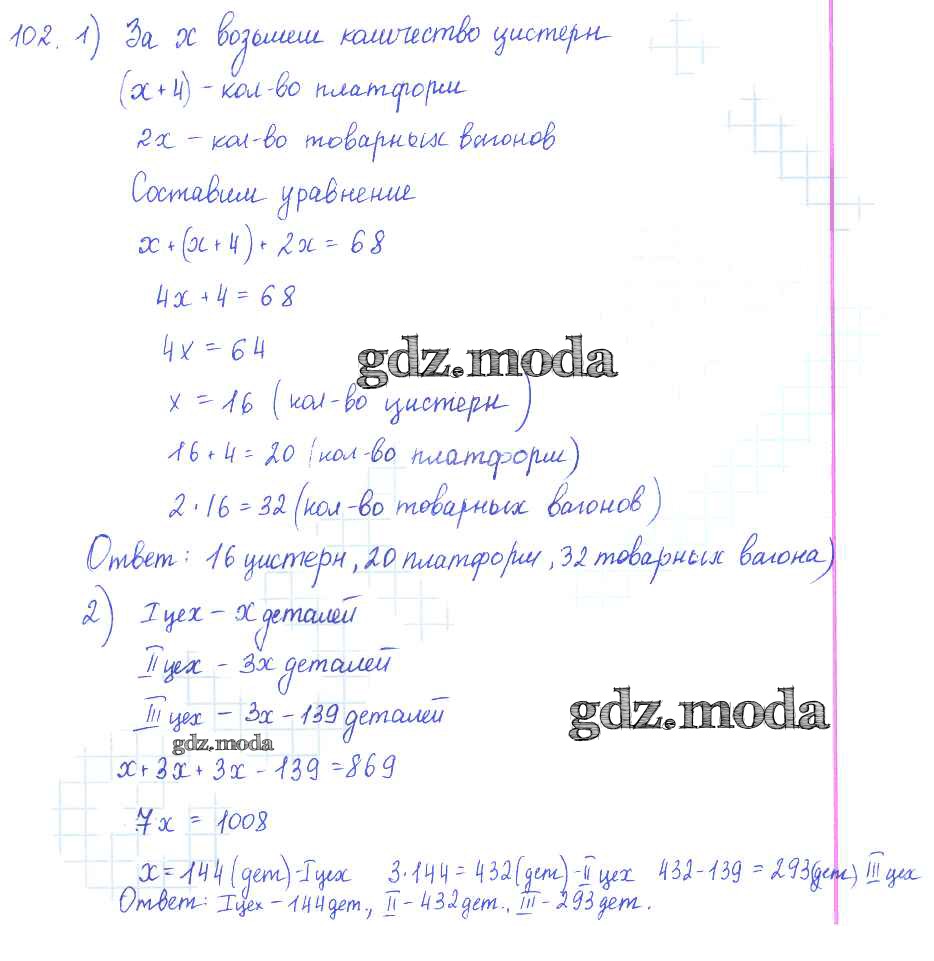 102. 1) За x возьмем количество цистерн
(x+4) - кол-во платформ
2x - кол-во товарных вагонов
Составим уравнение
x+(x+4)+2x=68
4x+4=68
4x=64
gdz.moda
x=16 (кол-во цистерн)
16+4=20 (кол-во платформ)
2·16=32 (кол-во товарных вагонов)
Ответ: 16 цистерн, 20 платформ, 32 товарных вагона)
2) I цех - x деталей
II цех - 3x деталей
III цех - 3x-139 деталей
gdz.moda
gdz.moda
x+3x+3x-139=869
7x=1008
x=144 (дет)-I цех 3·144=432 (дет)-II цех 432-139=293 (дет) III цех
Ответ: I цех-144 дет., II-432 дет., III-293 дет.